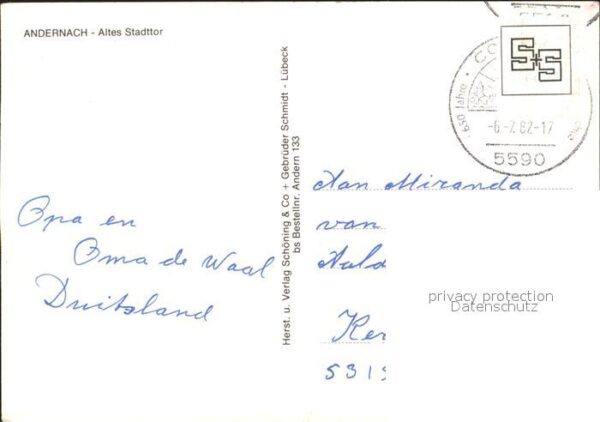 ANDERNACH - Altes Stadttor
S+S
650 Jahre
-6.-7.82-17
5590
Opa en
Oma de Waal
Duitsland
Herst. u. Verlag Schöning & Co + Gebrüder Schmidt - Lübeck
bs Bestellnr. Andern 133
Aan Miranda
van
privacy protection
Datenschutz
Ker
5315